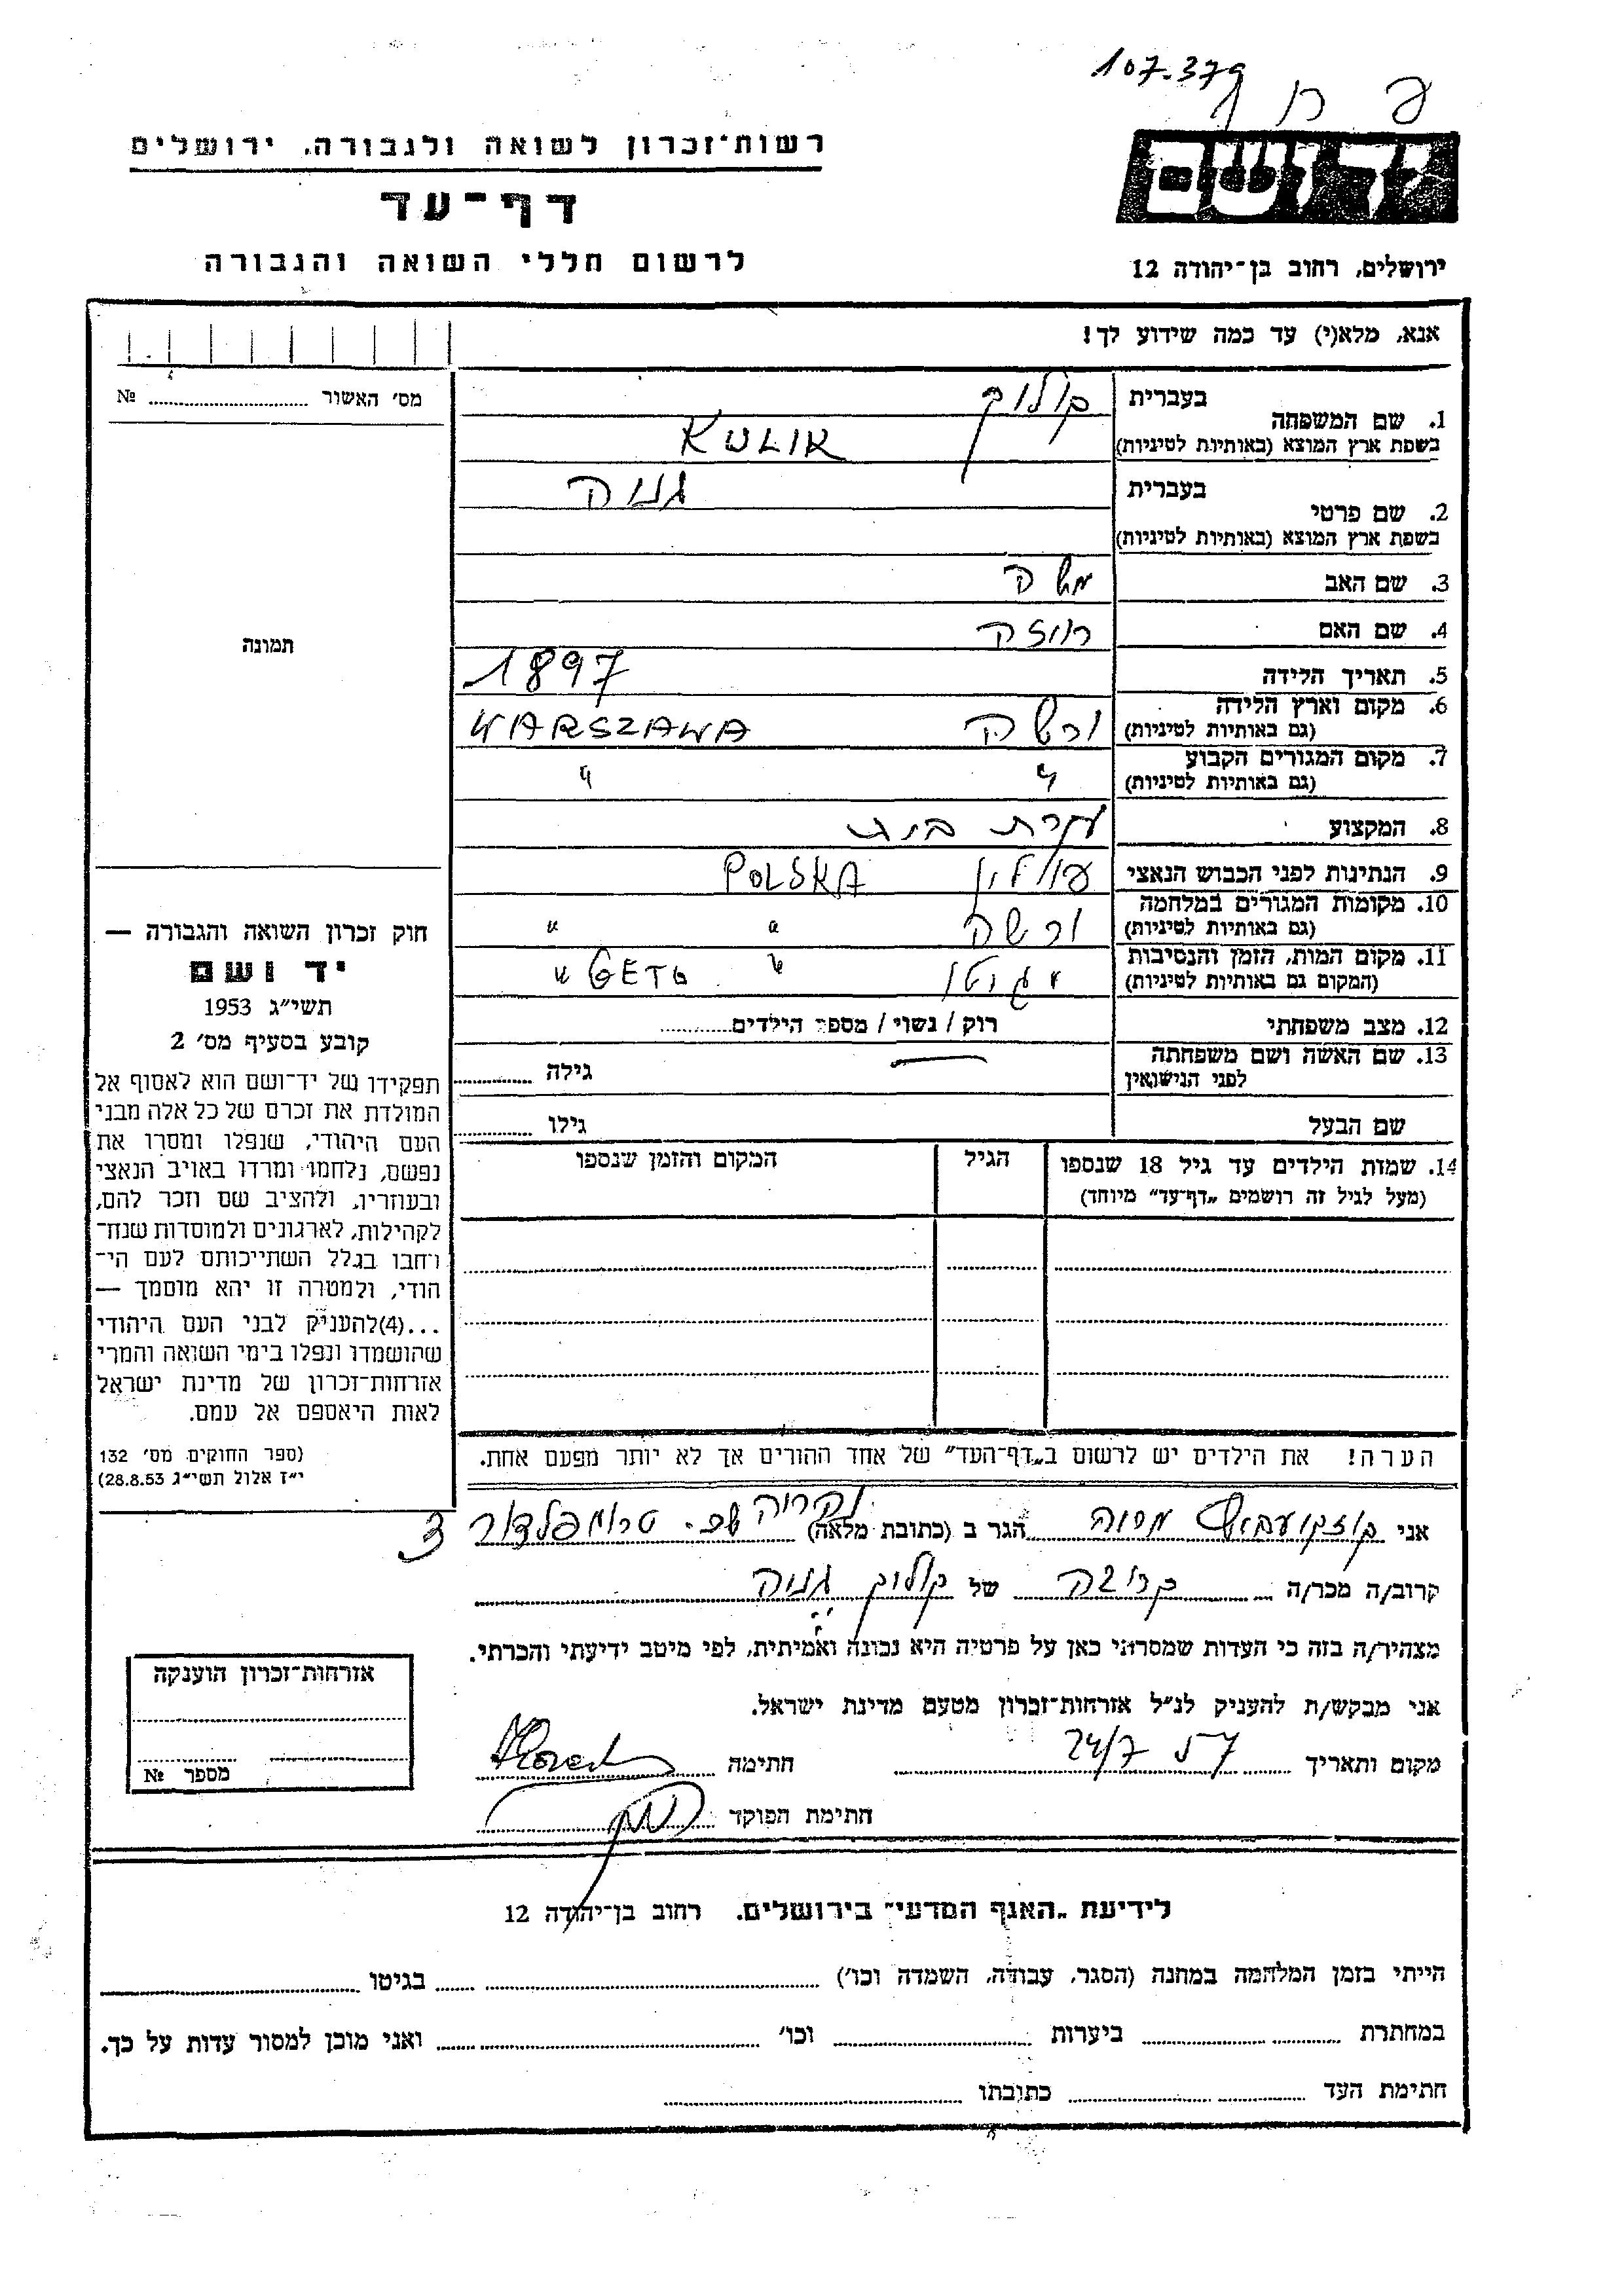 107.379
יד ושם
ירושלים, רחוב בן־יהודה 12
רשות־זכרון לשואה ולגבורה, ירושלים
דף־עד
לרשום חללי השואה והגבורה
אנא, מלא(י) עד כמה שידוע לך!
מס׳ האשור № 
1. שם המשפחה בעברית קוליק
בשפת ארץ המוצא (באותיות לטיניות) KULIK
2. שם פרטי בעברית גניה
בשפת ארץ המוצא (באותיות לטיניות)
3. שם האב משה
4. שם האם רוזה
5. תאריך הלידה 1897
6. מקום וארץ הלידה (גם באותיות לטיניות) ורשה WARSZAWA
7. מקום המגורים הקבוע (גם באותיות לטיניות) " "
8. המקצוע עקרת בית
9. הנתינות לפני הכבוש הנאצי פולין POLSKA
10. מקומות המגורים במלחמה (גם באותיות לטיניות) ורשה " "
11. מקום המות, הזמן והנסיבות (המקום גם באותיות לטיניות) גיטו " GETO "
12. מצב משפחתי רוק / נשוי / מספר הילדים
13. שם האשה ושם משפחתה לפני הנישואין — גילה
שם הבעל גילו
14. שמות הילדים עד גיל 18 שנספו (מעל לגיל זה רושמים „דף־עד״ מיוחד) הגיל המקום והזמן שנספו
הערה! את הילדים יש לרשום ב„דף־העד״ של אחד ההורים אך לא יותר מפעם אחת.
תמונה
חוק זכרון השואה והגבורה —
יד ושם
תשי״ג 1953
קובע בסעיף מס׳ 2
תפקידו של יד־ושם הוא לאסוף אל
המולדת את זכרם של כל אלה מבני
העם היהודי, שנפלו ומסרו את
נפשם, נלחמו ומרדו באויב הנאצי
ובעוזריו, ולהציב שם וזכר להם,
לקהילות, לארגונים ולמוסדות שנח־
רבו בגלל השתייכותם לעם הי־
הודי, ולמטרה זו יהא מוסמך —
...(4)להעניק לבני העם היהודי
שהושמדו ונפלו בימי השואה והמרי
אזרחות־זכרון של מדינת ישראל
לאות היאספם אל עמם.
(ספר החוקים מס׳ 132
י״ז אלול תשי״ג 28.8.53)
אני הגר ב (כתובת מלאה) שכ. טרומפלדור 3
קרוב/ה מכר/ה קרובה של קוליק גניה
מצהיר/ה בזה כי העדות שמסרתי כאן על פרטיה היא נכונה ואמיתית, לפי מיטב ידיעתי והכרתי.
אני מבקש/ת להעניק לנ״ל אזרחות־זכרון מטעם מדינת ישראל.
מקום ותאריך 24/7 57 חתימה
חתימת הפוקד
אזרחות־זכרון הוענקה
מספר №
לידיעת „האגף המדעי״ בירושלים, רחוב בן־יהודה 12
הייתי בזמן המלחמה במחנה (הסגר, עבודה, השמדה וכו׳) בגיטו
במחתרת ביערות וכו׳ ואני מוכן למסור עדות על כך.
חתימת העד כתובתו